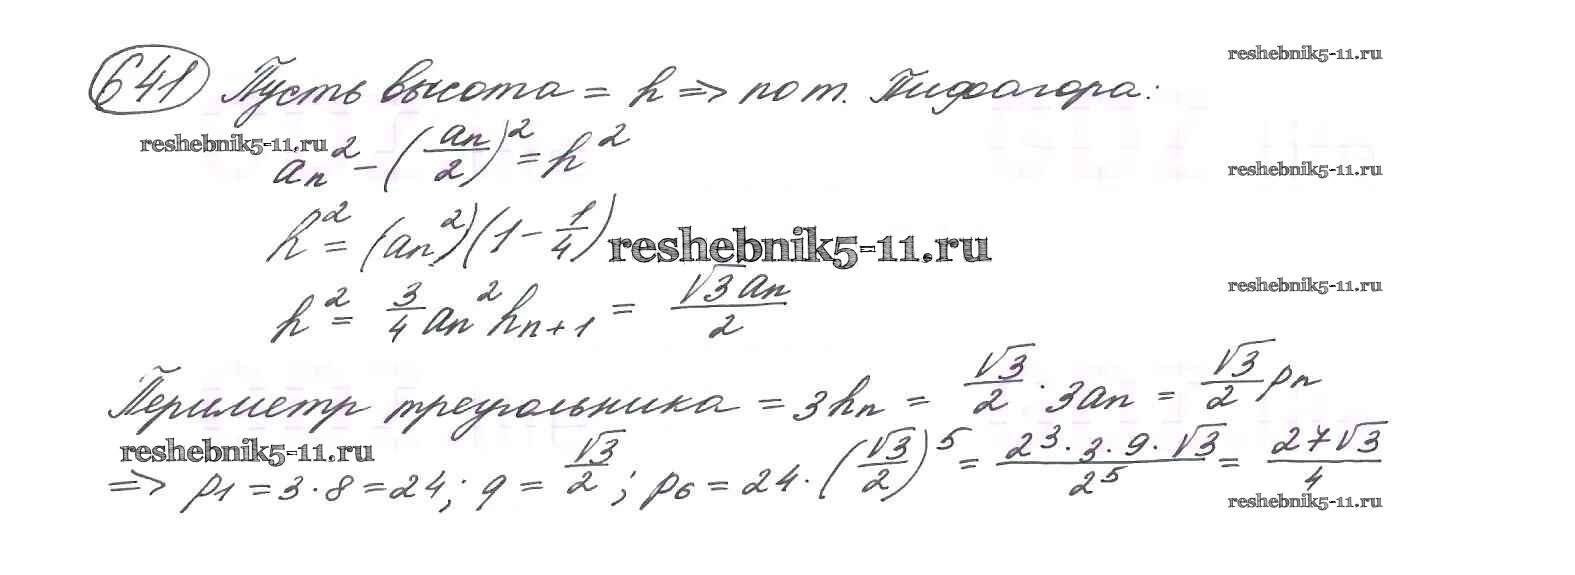 641 Пусть высота = h => по т. Пифагора: reshebnik5-11.ru
reshebnik5-11.ru
aₙ² - (aₙ/2)² = h²
reshebnik5-11.ru
h² = (aₙ²)(1 - 1/4) reshebnik5-11.ru
reshebnik5-11.ru
h² = 3/4 aₙ² hₙ₊₁ = √3aₙ/2
Периметр треугольника = 3hₙ = √3/2 · 3aₙ = √3/2 pₙ
reshebnik5-11.ru
=> p₁ = 3·8 = 24; q = √3/2; p₆ = 24·(√3/2)⁵ = 2³·3·9·√3/2⁵ = 27√3/4
reshebnik5-11.ru